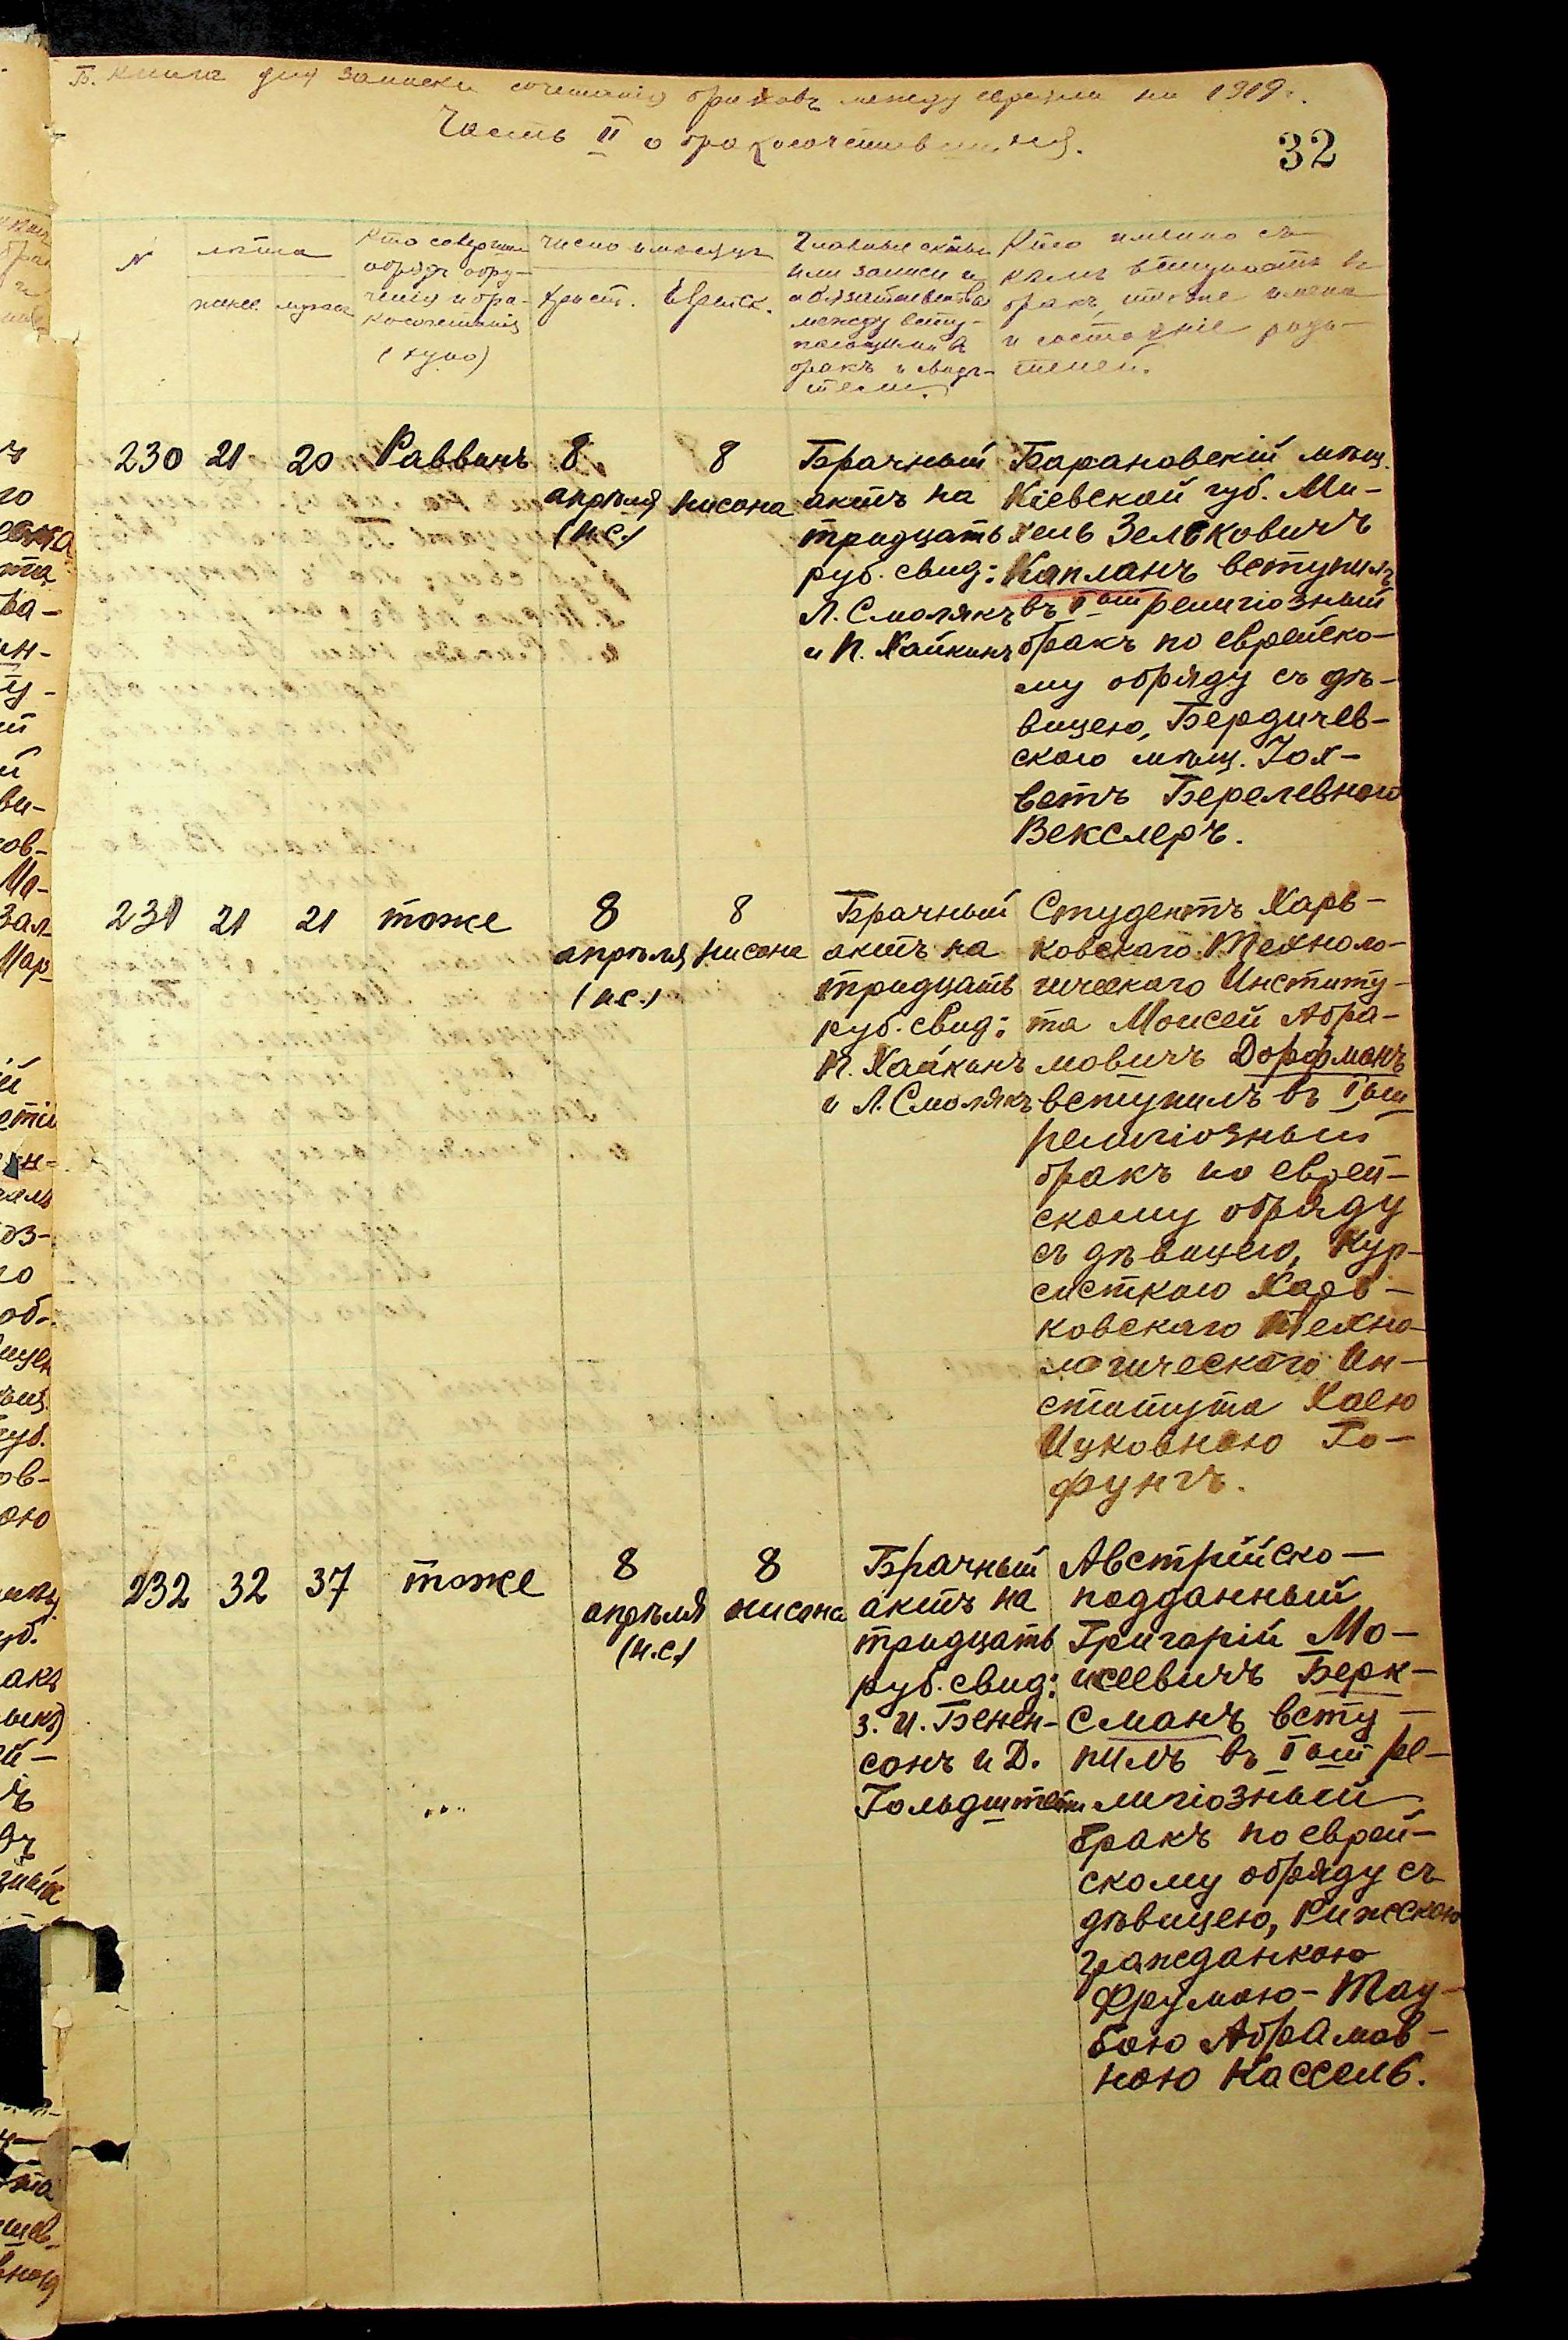 Б. Книга для записки сочетанія браковъ между евреями на 1919г.
Часть II о бракосочетавшихся.
32
№
лѣта
жен. мужа
Кто совершал
обрядъ обру-
ченія и бра-
косочетанія
(хупо)
число и мѣсяцъ
Христ.
Еврейск.
Главные акты
или записи и
обязательства
между всту-
пающими въ
бракъ и свидѣ-
тели.
Кто именно съ
кѣмъ вступаетъ въ
бракъ, также имена
и состояніе роди-
телей.
230 21 20 Раввинъ
8
апрѣля
(н.с.)
8
нисона
Брачный
актъ на
тридцать
руб. свид:
Л. Смолякъ
и П. Хайкинъ
Барановскій мѣщ.
Кіевской губ. Ми-
хель Зельковичъ
Капланъ вступилъ
въ I ый религіозный
бракъ по еврейско-
му обряду съ дѣ-
вицею, Бердичев-
скаго мѣщ. Іох-
ветъ Берелевною
Векслеръ.
231 21 21 тоже
8
апрѣля
(н.с.)
8
нисона
Брачный
актъ на
тридцать
руб. свид:
П. Хайкинъ
и Л. Смолякъ
Студентъ Харь-
ковскаго Техноло-
гическаго Институ-
та Моисей Абра-
мовичъ Дорфманъ
вступилъ въ I ый
религіозный
бракъ по еврей-
скому обряду
съ дѣвицею, Кур-
систкою Харь-
ковскаго Техно-
логическаго Ин-
ститута Хаею
Ицковною Го-
фунгъ.
232 32 37 тоже
8
апрѣля
(н.с.)
8
нисона
Брачный
актъ на
тридцать
руб. свид:
З. И. Бенен-
сонъ и Д.
Гольдштейн
Австрійско-
подданный
Григорій Мо-
исеевичъ Берк-
сманъ всту-
пилъ въ I ый ре-
лигіозный
бракъ по еврей-
скому обряду съ
дѣвицею, Рижскою
гражданкою
Фрумою-Тау-
бою Абрамов-
ною Кассель.